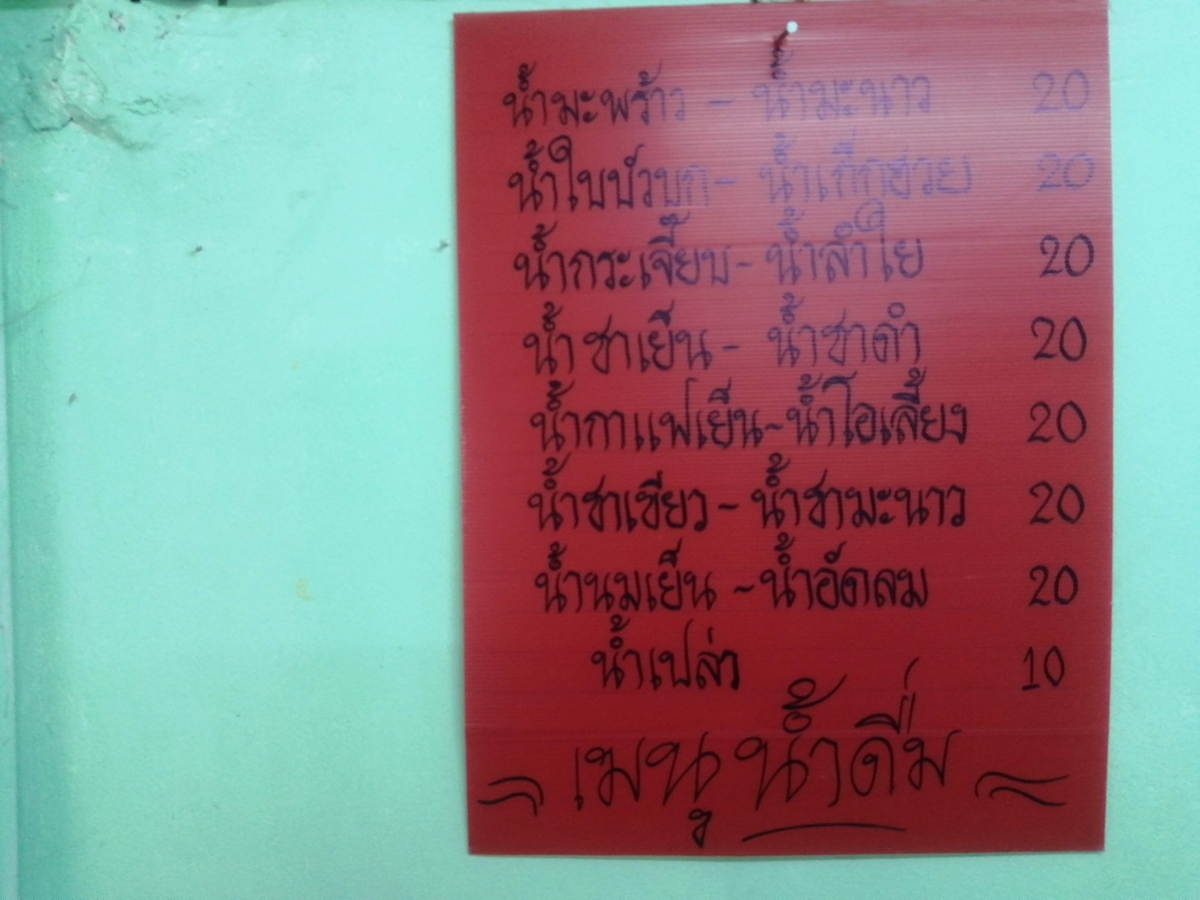 น้ำมะพร้าว - น้ำมะนาว 20
น้ำใบบัวบก - น้ำเก็กฮวย 20
น้ำกระเจี๊ยบ - น้ำลำใย 20
น้ำชาเย็น - น้ำชาดำ 20
น้ำกาแฟเย็น - น้ำโอเลี้ยง 20
น้ำชาเขียว - น้ำชามะนาว 20
น้ำนมเย็น - น้ำอัดลม 20
น้ำเปล่า 10
เมนูน้ำดื่ม